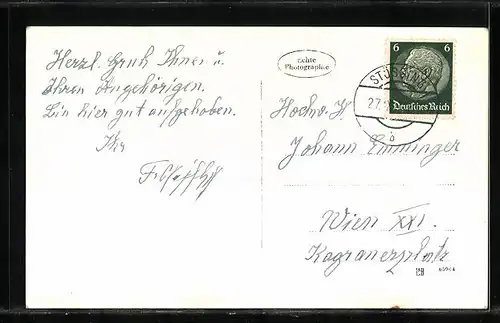 Herzl. Gruß Ihnen u.
Ihren Angehörigen.
Bin hier gut aufgehoben.
Ihr
echte
Photographie
6 6
Deutsches Reich
27.
b
Hochw. H.
Johann Emminger
Wien XXI.
Kagranerplatz